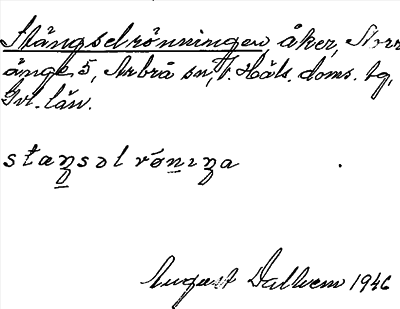 Stängselrönningen, åker, Norr
änge 5, Arbrå sn, V. Häls. doms. tg,
Gvl. län.
staŋsəl rönıŋa
August Dalhem 1946